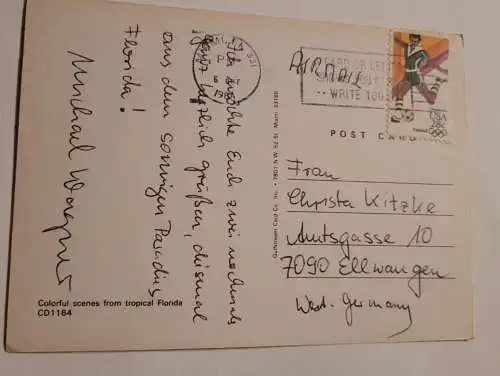 Ich möchte Euch zwei nochmals
ganz herzlich grüßen, diesmal
aus dem sonnigen Paradies
Florida!
Michael Wagner
Colorful scenes from tropical Florida
CD1164
Gulfstream Card Co. Inc. • 7801 N.W. 52 St. Miami 33166
AIRMAIL
CARD OR LETTER
WRITE TOD
USA
28c
POST CARD
Frau
Christa Kitzke
Amtsgasse 10
7090 Ellwangen
West-Germany